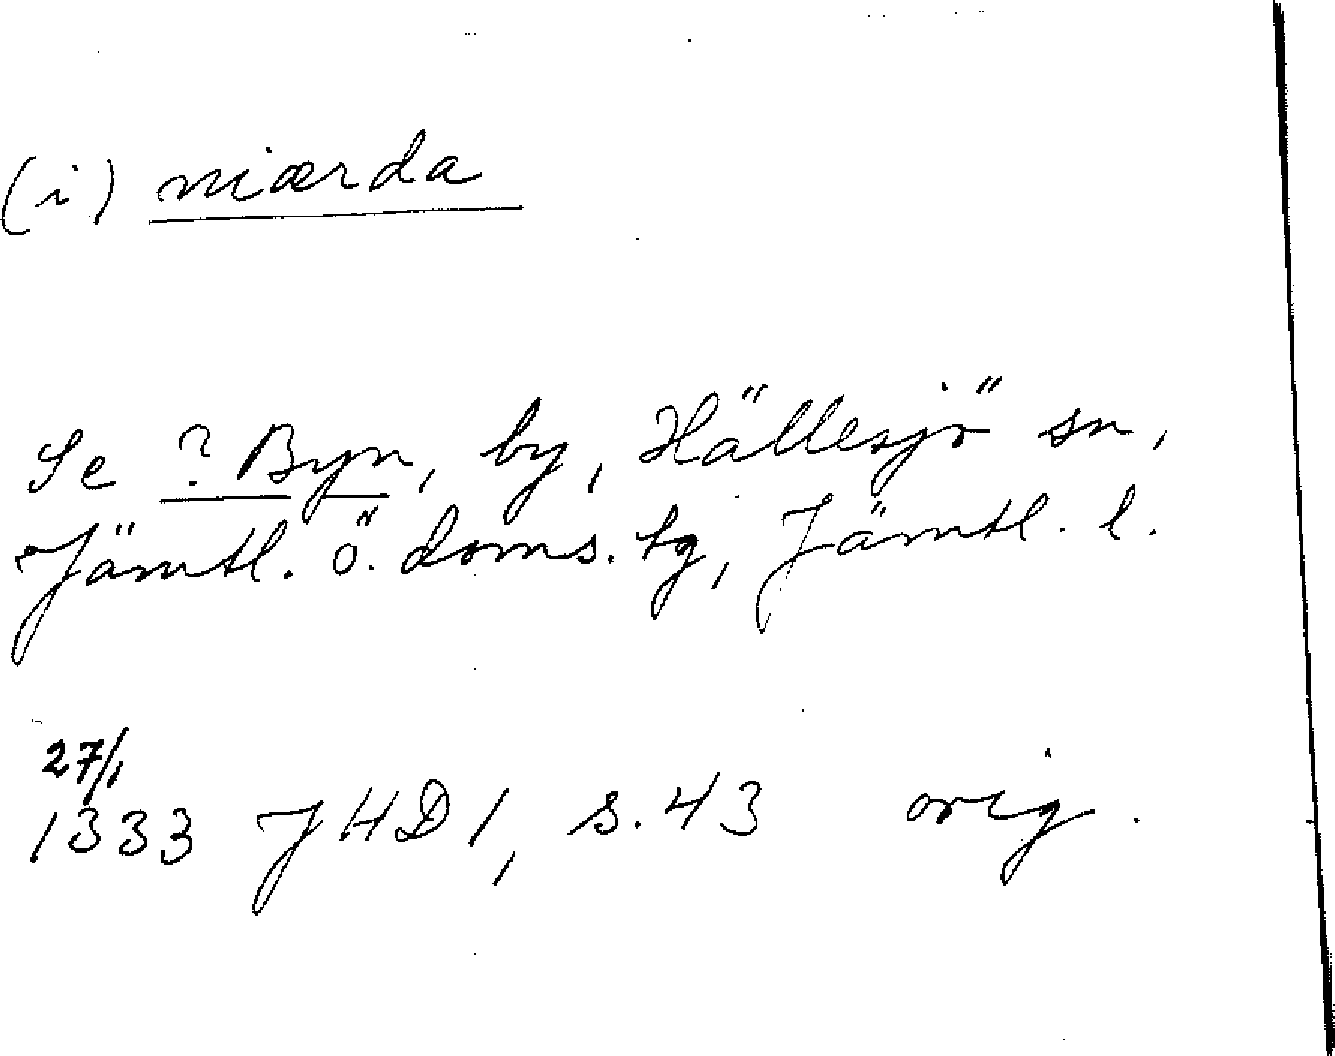 (i) niærda
Se ? Byn, by, Hällesjö sn,
Jämtl. ö. doms. tg, Jämtl. l.
27/1
1333 JHD 1, s. 43 orig.